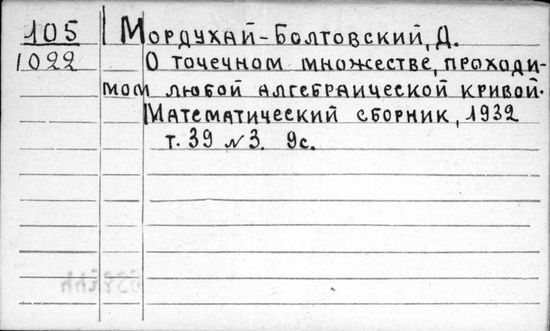 105
1022
Мордухай-Болтовский, Д.
О точечном множестве, проходи-
мом любой алгебраической кривой.
Математический сборник, 1932
т. 39 № 3. 9с.